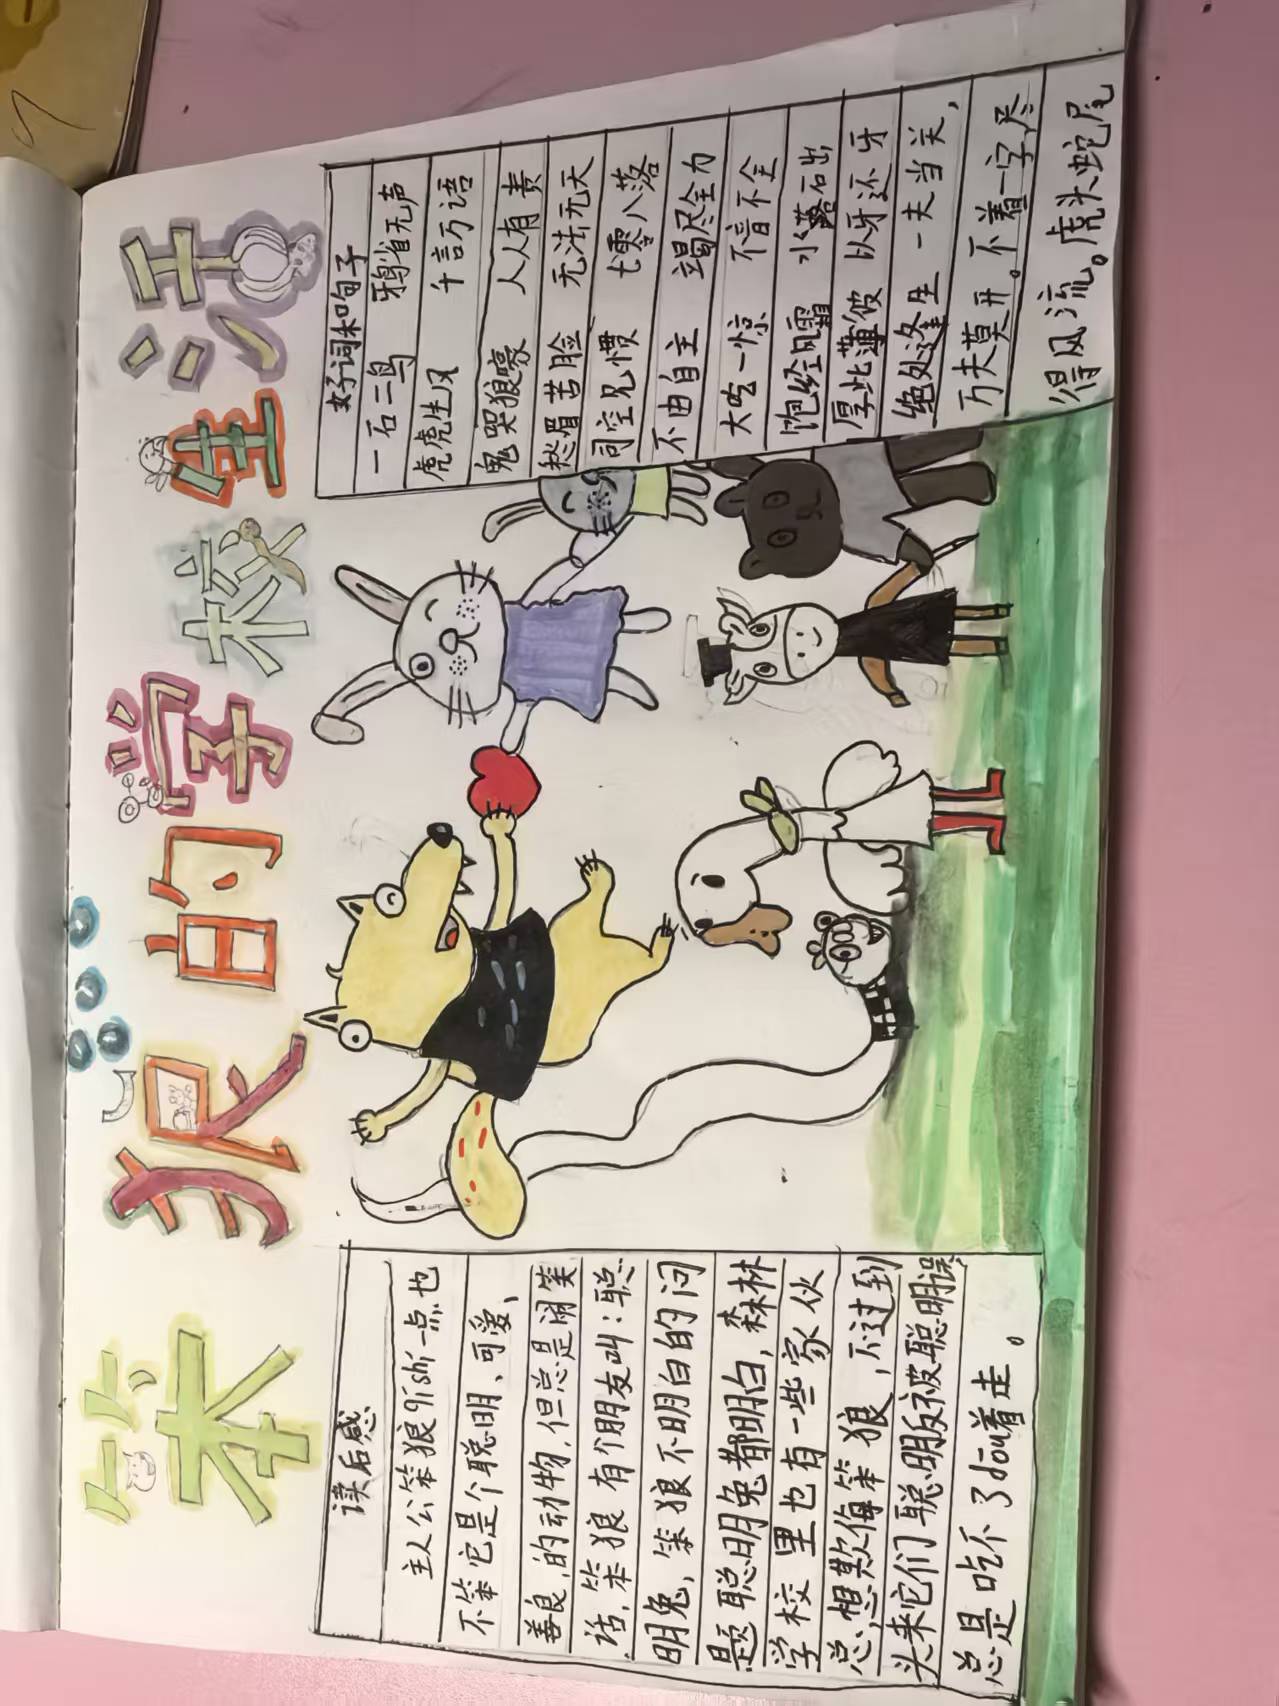 笨狼的学校生活
读后感
主人公笨狼qishi一点也
不笨它是个聪明、可爱、
善良,的动物,但总是闹笑
话,笨狼有个朋友叫:聪
明兔,笨狼不明白的问
题聪明兔都明白,森林
学校里也有一些家伙
总想欺侮笨狼,不过到
头来它们聪明反被聪明误
总是吃不了dou着走。
好词和句子
一石二鸟 鸦雀无声
虎虎生风 千言万语
鬼哭狼嚎 人人有责
愁眉苦脸 无法无天
司空见惯 七零八落
不由自主 竭尽全力
大吃一惊 不言不全
饱经风霜 水落石出
厚此薄彼 以牙还牙
绝处逢生 一夫当关,
万夫莫开。不着一字,尽
得风流。虎头蛇尾